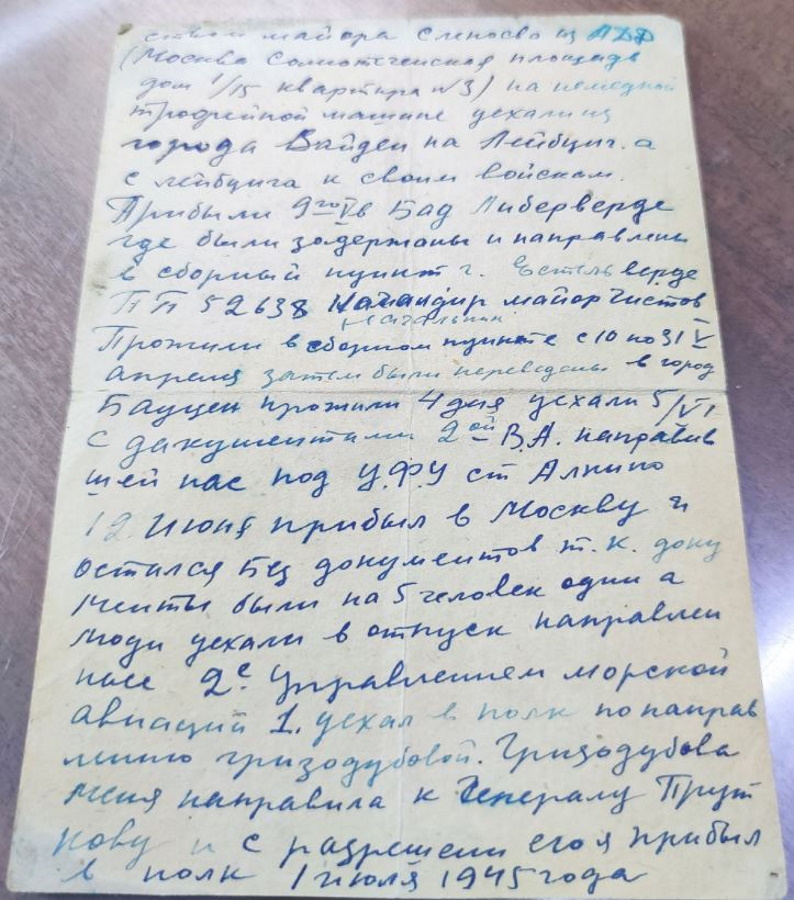 майора из АДД
(Москва площадь
дом 1/15 квартира №3) на немецкой
трофейной машине уехали из
города Вайден на Лейбциг. а
с лейбцига к своим войскам.
Прибыли 9го V в Бад Либерверде
где были задержаны и направлены
в сборный пункт г. верде
ПП 52638 Командир майор Чистов
начальник
Прожили в сборном пункте с 10 по 31 V
апреля затем были переведены в город
Бауцен прожили 4 дня уехали 5/VI
с дакументами 2ой В.А. направив
шей нас под У.Ф.У ст Алкино
12 Июня прибыл в Москву и
остался без документов т. к. доку
менты были на 5 человек одни а
люди уехали в отпуск направлен
2е Управлением морской
авиации 1. уехал в полк по направ
лению гризодубовой. Гризодубова
меня направила к Генералу Прут
кову и с разрешени его я прибыл
в полк 1 июля 1945 года